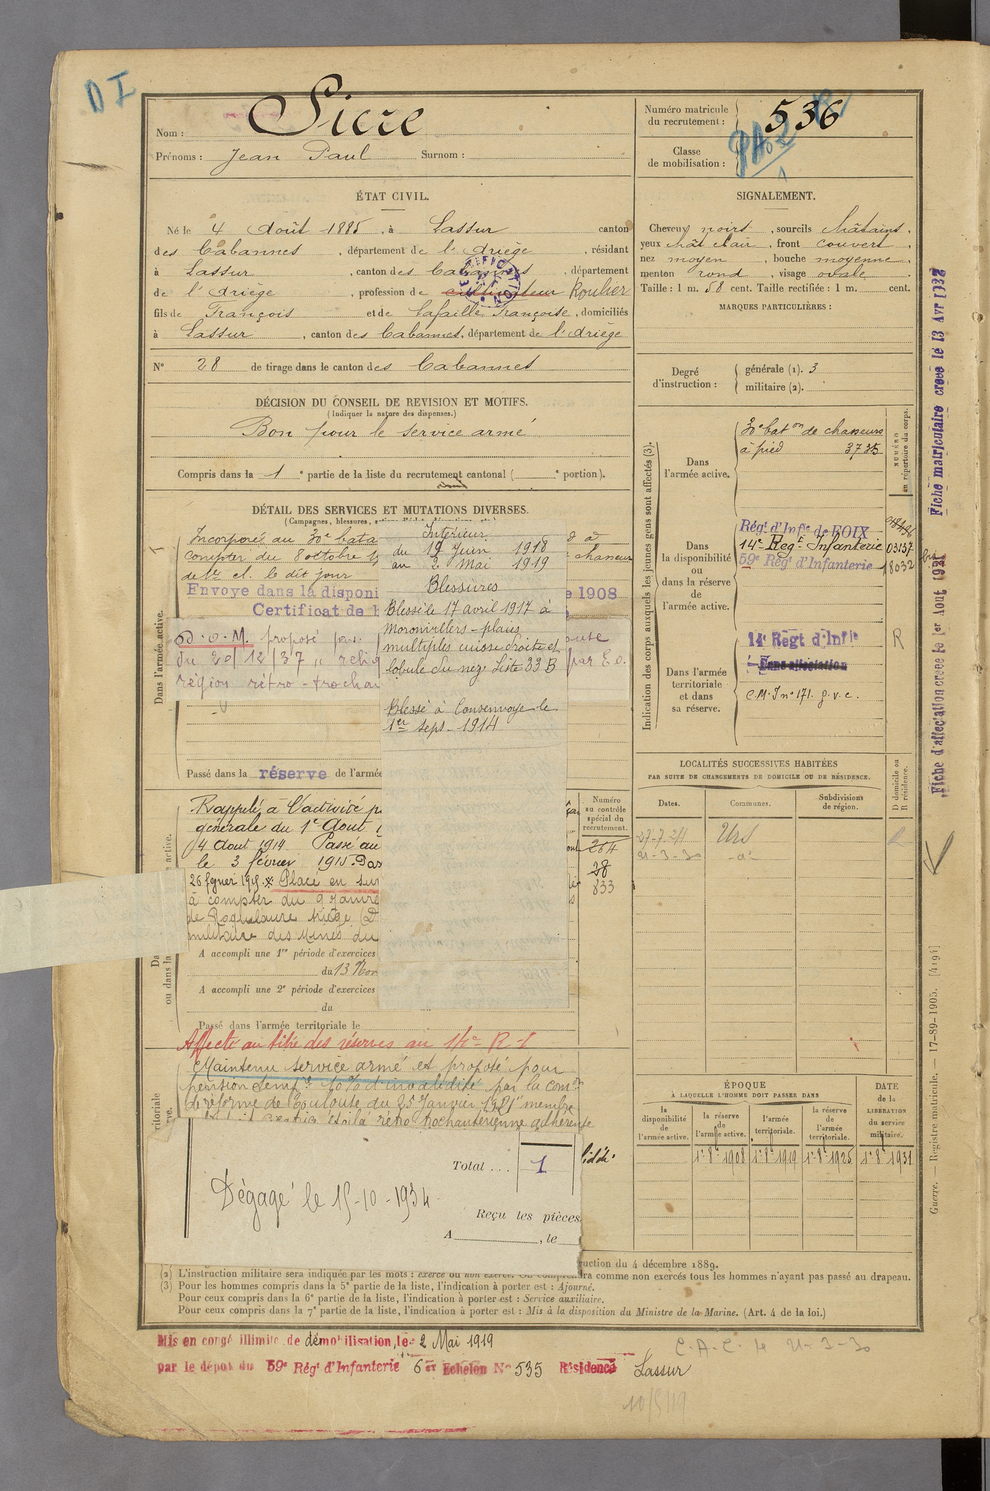 D I
Nom : Sicre
Prénoms : Jean Paul Surnom :
Numéro matricule du recrutement : 536
Classe de mobilisation :
ÉTAT CIVIL.
Né le 4 Août 1885, à Lassur canton
des Cabannes, département de l'Ariège, résidant
à Lassur, canton des Cabannes, département
de l'Ariège, profession de cultivateur Roulier
fils de François et de Lafaille Françoise, domiciliés
à Lassur, canton des Cabannes, département de l'Ariège
N° 28 de tirage dans le canton des Cabannes
SIGNALEMENT.
Cheveux noirs, sourcils châtains,
yeux chât clair, front couvert,
nez moyen, bouche moyenne,
menton rond, visage ovale.
Taille : 1 m. 58 cent. Taille rectifiée : 1 m. cent.
MARQUES PARTICULIÈRES :
Degré d'instruction : générale (1). 3
militaire (2).
DÉCISION DU CONSEIL DE REVISION ET MOTIFS.
(Indiquer la nature des dispenses.)
Bon pour le service armé
Compris dans la 1e partie de la liste du recrutement cantonal ( e portion).
DÉTAIL DES SERVICES ET MUTATIONS DIVERSES.
Dans l'armée active.
Incorporé au 30e bata
compter du 8 octobre
de 2e cl. le dit jour
chasseur
Envoyé dans la disponi
e 1908
Certificat de b
D.O.M. proposé pa
du 20/12/37
région rétro-trochan
Passé dans la réserve de l'armée
Intérieur
du 19 Juin 1918
au 2 Mai 1919
Blessures
Blessé le 17 avril 1917 à
Moronvillers - plaies
multiples cuisse droite et
lobule du nez. Liste 33 B
Blessé à Consenvoye le
1er sept. 1914
Rappelé à l'activité p
générale du 1er Août 1
4 Août 1914 Passé au
le 3 février 1915. Pas
Placé en sur
à compter du 9 Janvie
militaire des Mines du
A accompli une 1re période d'exercices
du 13 Nov
A accompli une 2e période d'exercices
du
Passé dans l'armée territoriale le
Affecté au titre des réserves au 14e R.I
Maintenu service armé et proposé pour
pension temp. 10% d'invalidité par la Comon
de réforme de Toulouse du 25 Janvier 1921
Numéro au contrôle spécial du recrutement.
264
38
833
Total ... 1
Dégagé le 15-10-1934
Reçu les pièces
A , le
Indication des corps auxquels les jeunes gens sont affectés (3).
Dans l'armée active.
30e baton de chasseurs
à pied 3735
NUMÉRO au répertoire du corps.
Dans la disponibilité ou dans la réserve de l'armée active.
Régt d'Infie de FOIX
14e Régt Infanterie 03137
59e Régt d'Infanterie 18032
Dans l'armée territoriale et dans sa réserve.
14e Régt d'Infie R
Sans affectation
C.M.I n°171. g.v.c.
LOCALITÉS SUCCESSIVES HABITÉES
PAR SUITE DE CHANGEMENTS DE DOMICILE OU DE RÉSIDENCE.
Dates. Communes. Subdivisions de région. D domicile ou R résidence.
Urs
ÉPOQUE
À LAQUELLE L'HOMME DOIT PASSER DANS
la disponibilité de l'armée active.
la réserve de l'armée active.
l'armée territoriale.
la réserve de l'armée territoriale.
DATE de la LIBÉRATION du service militaire.
1er 8bre 1908 1er 8bre 1919 1er 8bre 1925 1er 8bre 1931
Fiche matriculaire créée le 13 Avr 1932
Fiche d'affectation créée le 1er Août 1921
Guerre. — Registre matricule. — 17-89-1905. [4194]
ruction du 4 décembre 1889.
(2) L'instruction militaire sera indiquée par les mots : exercé ou non exercé. On comprendra comme non exercés tous les hommes n'ayant pas passé au drapeau.
(3) Pour les hommes compris dans la 5e partie de la liste, l'indication à porter est : Ajourné.
Pour ceux compris dans la 6e partie de la liste, l'indication à porter est : Service auxiliaire.
Pour ceux compris dans la 7e partie de la liste, l'indication à porter est : Mis à la disposition du Ministre de la Marine. (Art. 4 de la loi.)
Mis en congé illimité de démobilisation, le 2 Mai 1919
par le dépôt du 59e Régt d'Infanterie 6e Echelon N° 535 Résidence Lassur
C.A.C. le 21-3-30
10/5/19